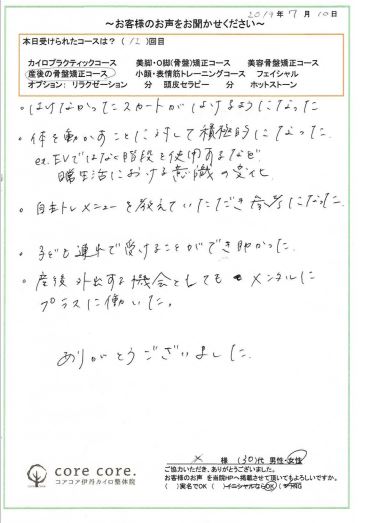 2019年 7月 10日
～お客様のお声をお聞かせください～
本日受けられたコースは？（12）回目
カイロプラクティックコース　美脚・O脚(骨盤)矯正コース　美容骨盤矯正コース
産後の骨盤矯正コース　小顔・表情筋トレーニングコース　フェイシャル
オプション： リラクゼーション　分　頭皮セラピー　分　ホットストーン
・はけなかったスカートがはけるようになった
・体を動かすことに対して積極的になった
ex. EVではなく階段を使用するなど
日常生活における意識の変化
・自主トレメニューを教えていただき参考になった
・子ども連れで受けることができ助かった
・産後外出する機会としても メンタルに
プラスに働いた。
ありがとうございました。
様（30）代 男性・女性
ご協力いただき、ありがとうございました。
お客様のお声 を当院HPへ掲載させて頂いてもよろしいですか。
（　）実名でOK（　）イニシャルならOK（　）NG
core core.
コアコア伊丹カイロ整体院